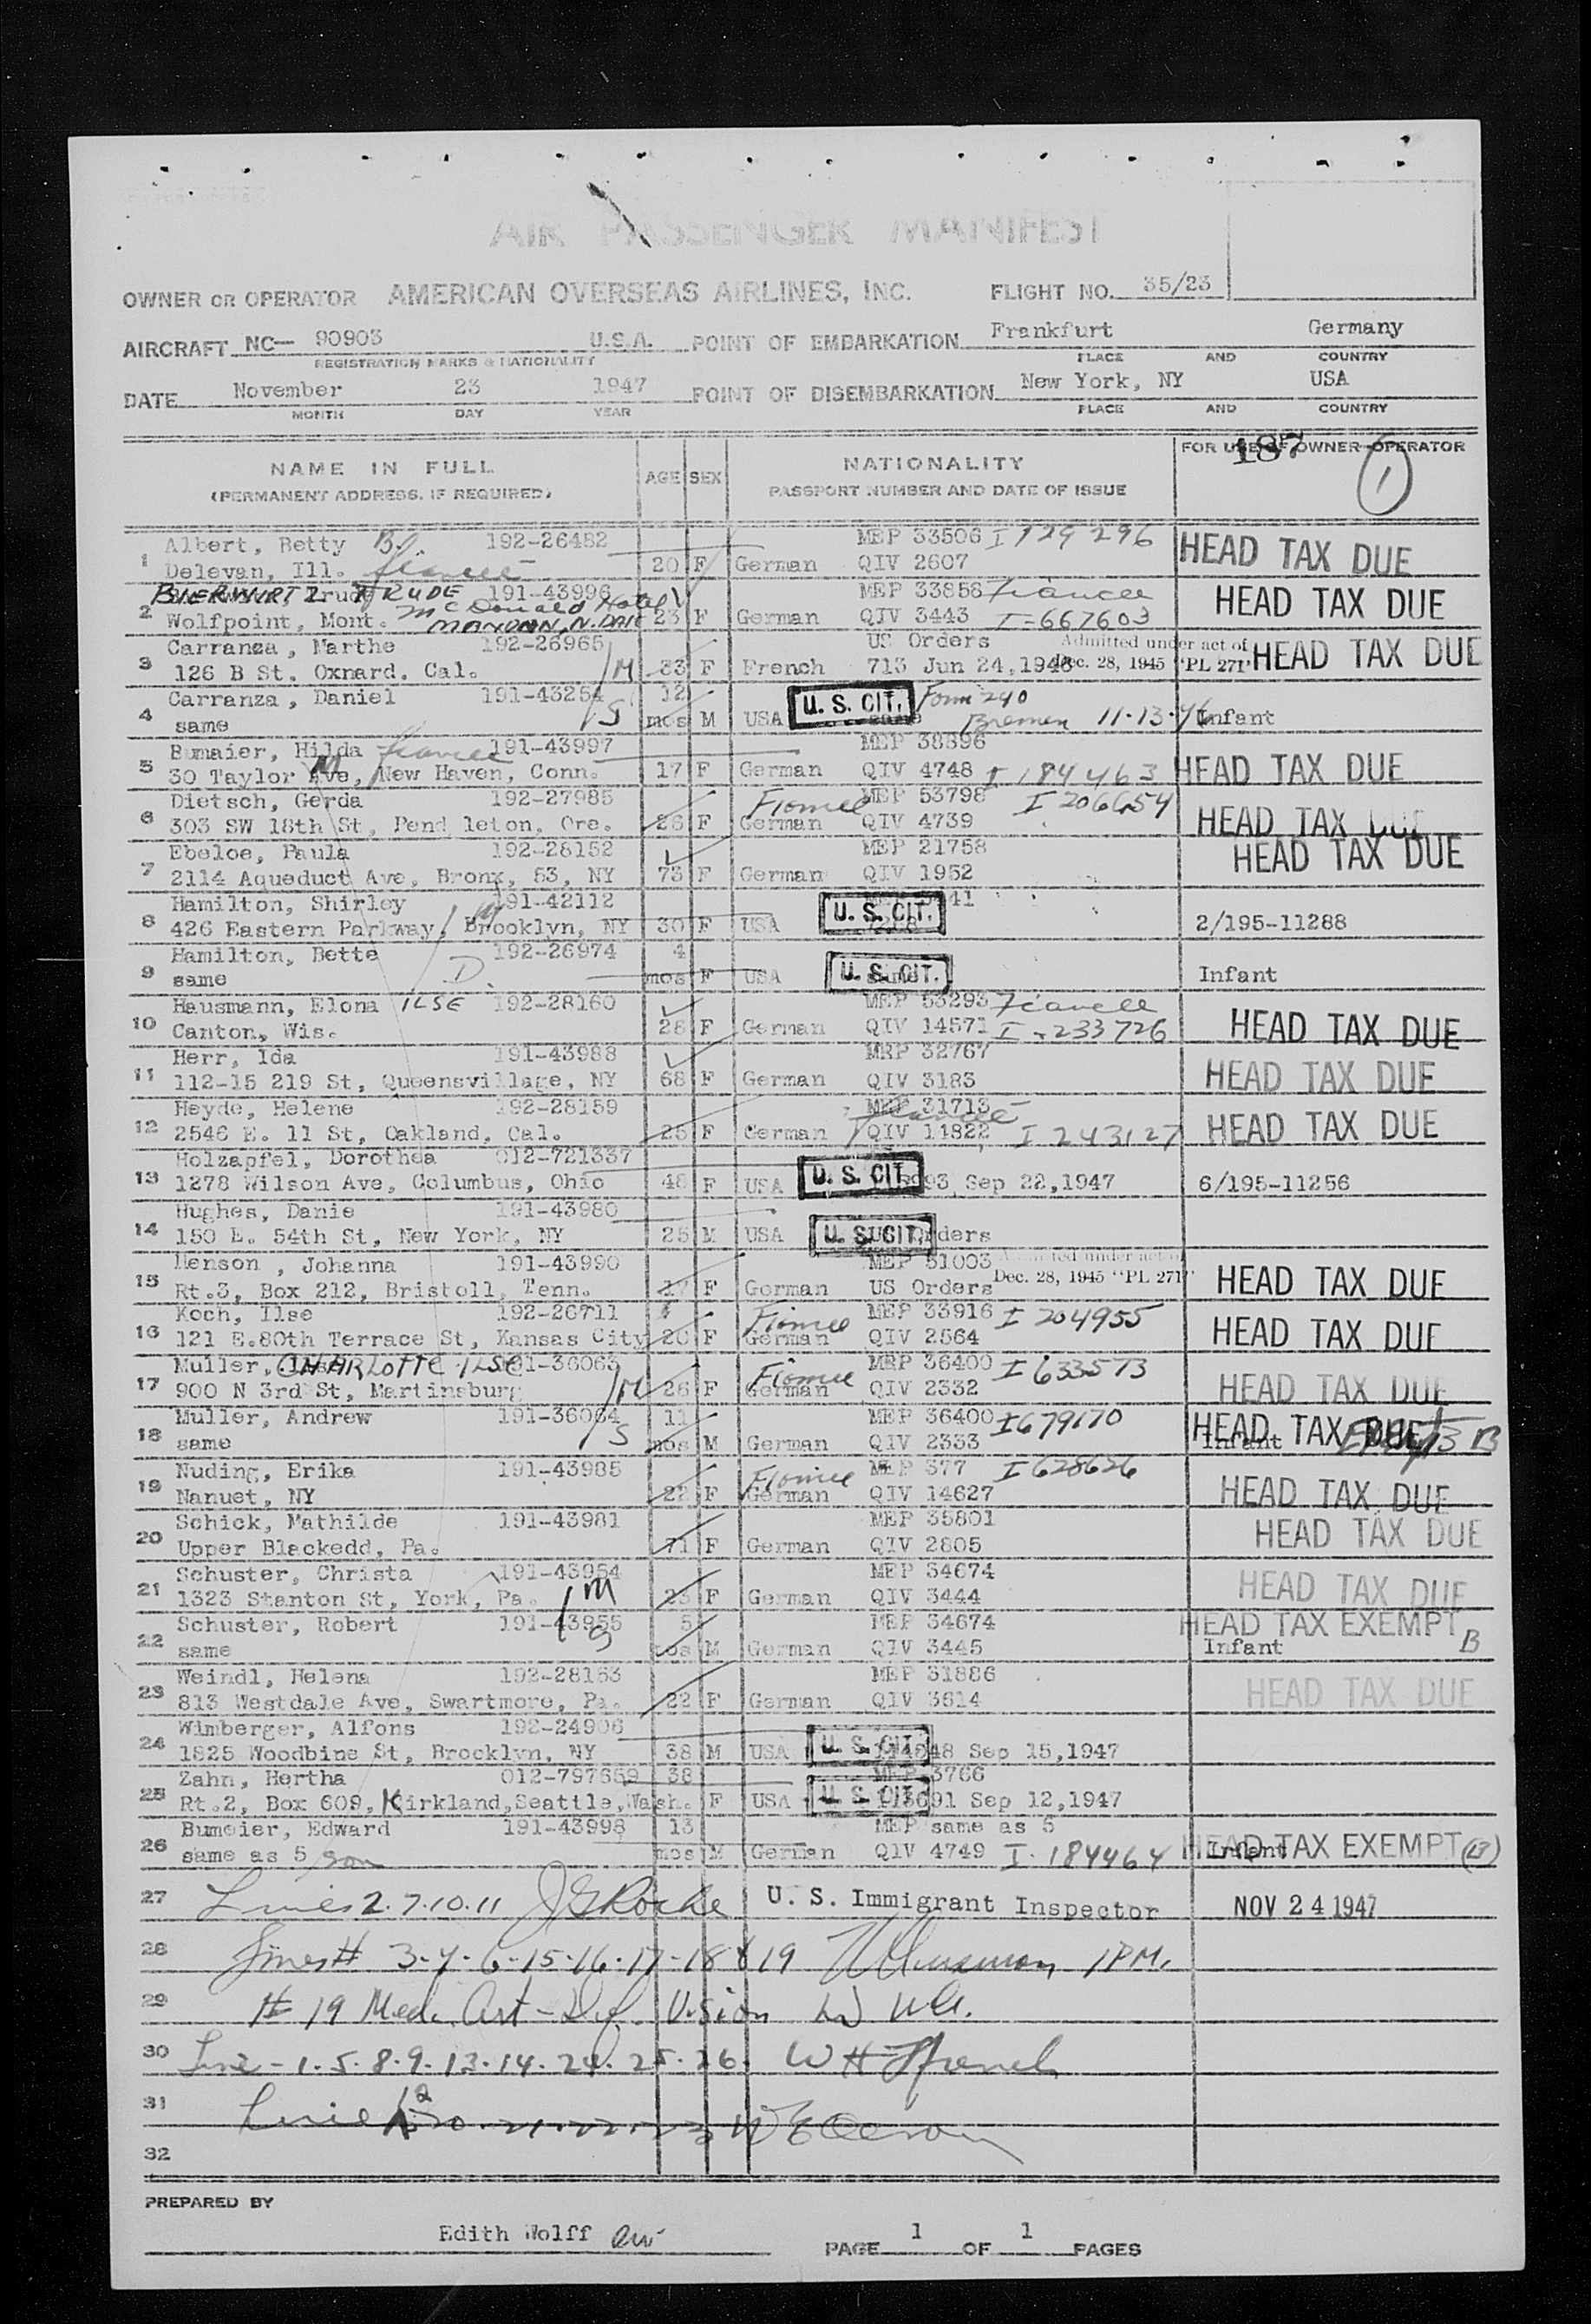 AIR PASSENGER MANIFEST
OWNER OR OPERATOR AMERICAN OVERSEAS AIRLINES, INC. FLIGHT NO. 35/23
AIRCRAFT NC— 90903 U.S.A. POINT OF EMBARKATION Frankfurt Germany
REGISTRATION MARKS & NATIONALITY PLACE AND COUNTRY
DATE November 23 1947 POINT OF DISEMBARKATION New York, NY USA
MONTH DAY YEAR PLACE AND COUNTRY
187
NAME IN FULL AGE SEX NATIONALITY FOR USE OF OWNER OPERATOR
(PERMANENT ADDRESS, IF REQUIRED) PASSPORT NUMBER AND DATE OF ISSUE 1
Albert, Betty 192-26482 MEP 33506 I 129 296
1 Delevan, Ill. fiancee 20 F German QIV 2607 HEAD TAX DUE
BIERWIRTZ TRUDE 191-43996 MEP 33856 Fiancee
2 Wolfpoint, Mont. McDonald Hotel MANDAN, N. DAK 23 F German QIV 3443 I-667603 HEAD TAX DUE
Carranza, Marthe 192-26965 US Orders Admitted under act of
3 126 B St. Oxnard. Cal. M 33 F French 713 Jun 24,1946 Dec. 28, 1945 "PL 271" HEAD TAX DUE
Carranza, Daniel 191-43254 12 U. S. CIT. Form 240
4 same S mos M USA Bremen 11-13-46 Infant
Bumaier, Hilda fiancee 191-43997 MEP 38896
5 30 Taylor Ave, New Haven, Conn. M 17 F German QIV 4748 I 184463 HEAD TAX DUE
Dietsch, Gerda 192-27985 Fiancee MEP 53798 I 206654
6 303 SW 18th St, Pend leton, Ore. 26 F German QIV 4739 HEAD TAX DUE
Ebeloe, Paula 192-28152 MEP 21758
7 2114 Aqueduct Ave, Bronx, 53, NY 73 F German QIV 1952 HEAD TAX DUE
Hamilton, Shirley 191-42112 M U. S. CIT.
8 426 Eastern Parkway, Brooklyn, NY 30 F USA 2/195-11288
Hamilton, Bette 192-26974 4
9 same D. mos F USA U. S. CIT. Infant
Hausmann, Elona ILSE 192-28160 MEP 53293 Fiancee
10 Canton, Wis. 28 F German QIV 14571 I-233726 HEAD TAX DUE
Herr, Ida 191-43988 MRP 32767
11 112-15 219 St, Queensvillage, NY 68 F German QIV 3183 HEAD TAX DUE
Heyde, Helene 192-28159 MEP 31713 fiancee
12 2546 E. 11 St, Oakland, Cal. 25 F German QIV 11822 I 243127 HEAD TAX DUE
Holzapfel, Dorothea 012-721337
13 1278 Wilson Ave, Columbus, Ohio 48 F USA U. S. CIT. Sep 22,1947 6/195-11256
Hughes, Danie 191-43980
14 150 E. 54th St, New York, NY 25 M USA U. S. CIT. Orders
Henson, Johanna 191-43990 MEP 51003 Admitted under act of
15 Rt.3, Box 212, Bristoll, Tenn. 17 F German US Orders Dec. 28, 1945 "PL 271" HEAD TAX DUE
Koch, Ilse 192-26711 Fiancee MEP 33916 I 204955
16 121 E.80th Terrace St, Kansas City 20 F German QIV 2564 HEAD TAX DUE
Muller, CHARLOTTE ILSE 191-36063 Fiancee MRP 36400 I 633573
17 900 N 3rd St, Martinsburg M 26 F German QIV 2332 HEAD TAX DUE
Muller, Andrew 191-36064 11 MEP 36400 I 679170
18 same S mos M German QIV 2333 Infant HEAD TAX DUE B
Nuding, Erika 191-43985 Fiancee MEP 377 I 628626
19 Nanuet, NY 22 F German QIV 14627 HEAD TAX DUE
Schick, Mathilde 191-43981 MEP 35801
20 Upper Blackedd, Pa. 71 F German QIV 2805 HEAD TAX DUE
Schuster, Christa 191-43954 MEP 34674
21 1323 Stanton St, York, Pa. M 23 F German QIV 3444 HEAD TAX DUE
Schuster, Robert 191-43955 5 MEP 34674 HEAD TAX EXEMPT
22 same S mos M German QIV 3445 Infant B
Weindl, Helena 192-28163 MEP 31886
23 813 Westdale Ave, Swartmore, Pa. 22 F German QIV 3614 HEAD TAX DUE
Wimberger, Alfons 192-24906
24 1825 Woodbine St, Brocklyn, NY 38 M USA U. S. CIT. Sep 15,1947
Zahn, Hertha 012-797659 38 MEP 3766
25 Rt.2, Box 609, Kirkland,Seattle,Wash. F USA U. S. CIT. Sep 12,1947
Bumeier, Edward 191-43998 13 MEP same as 5
26 same as 5 son mos M German QIV 4749 I-184464 Infant HEAD TAX EXEMPT (B)
27 Lines 2.7.10.11 J G Roche U. S. Immigrant Inspector NOV 24 1947
28 Lines # 3-4-6-15-16-17-18 & 19 1PM.
29 # 19 Med. Cert - Def. Vision
30 Line - 1.5.8.9.13.14.24.25.26. W H French
31 Line 12 20-21-22-23
32
PREPARED BY
Edith Wolff ew PAGE 1 OF 1 PAGES